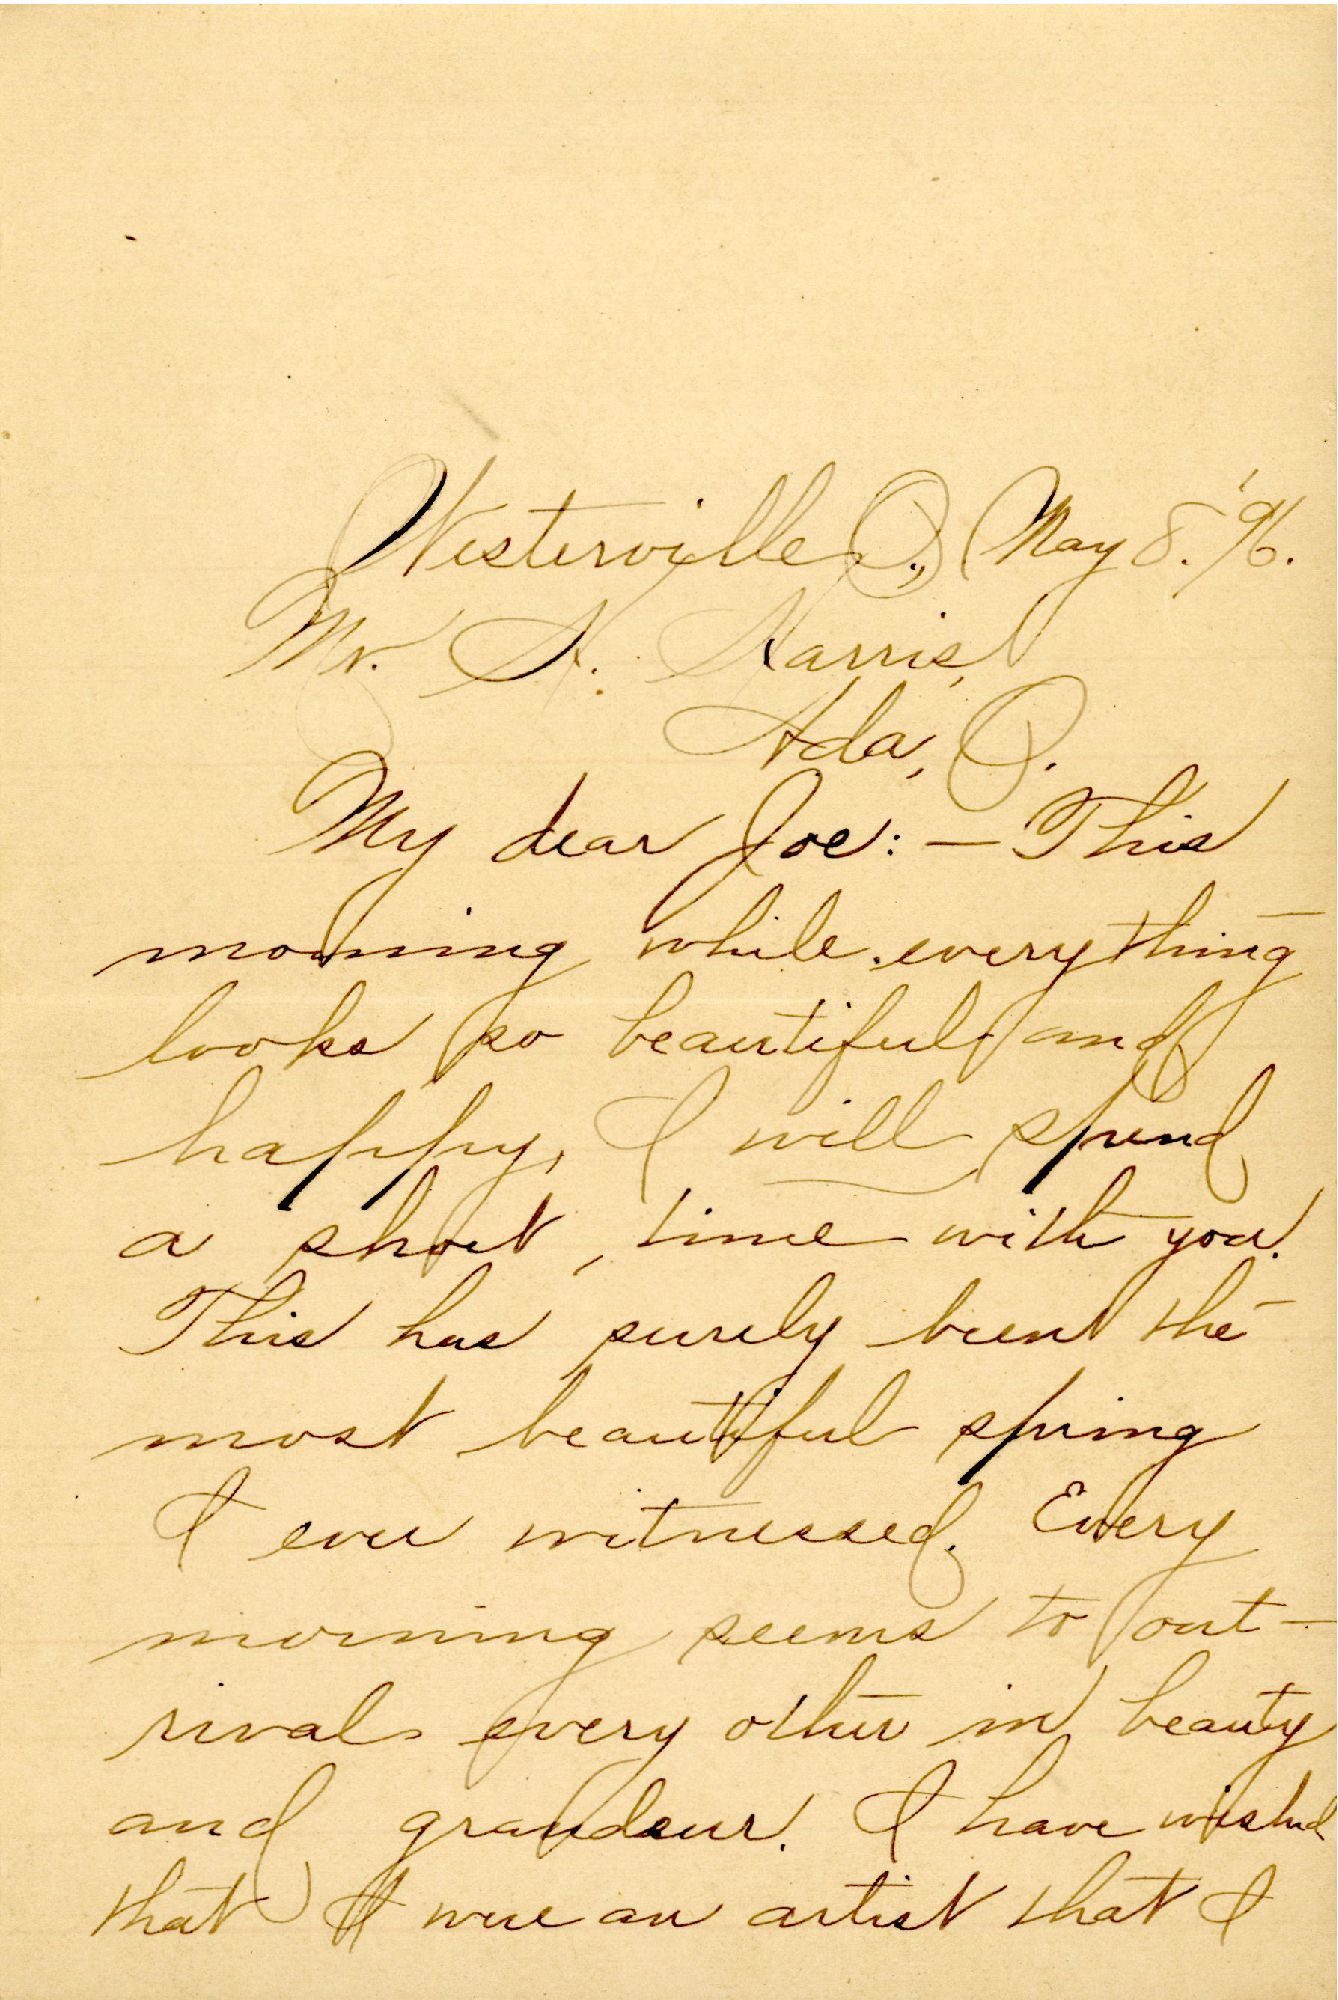 Westerville, O., May 8. '96.
Mr. A. Harris,
Ada, O.
My dear Joe: — This
morning while everything
looks so beautiful and
happy, I will spend
a short time with you.
This has surely been the
most beautiful spring
I ever witnessed. Every
morning seems to out-
rival every other in beauty
and grandeur. I have wished
that I were an artist that I